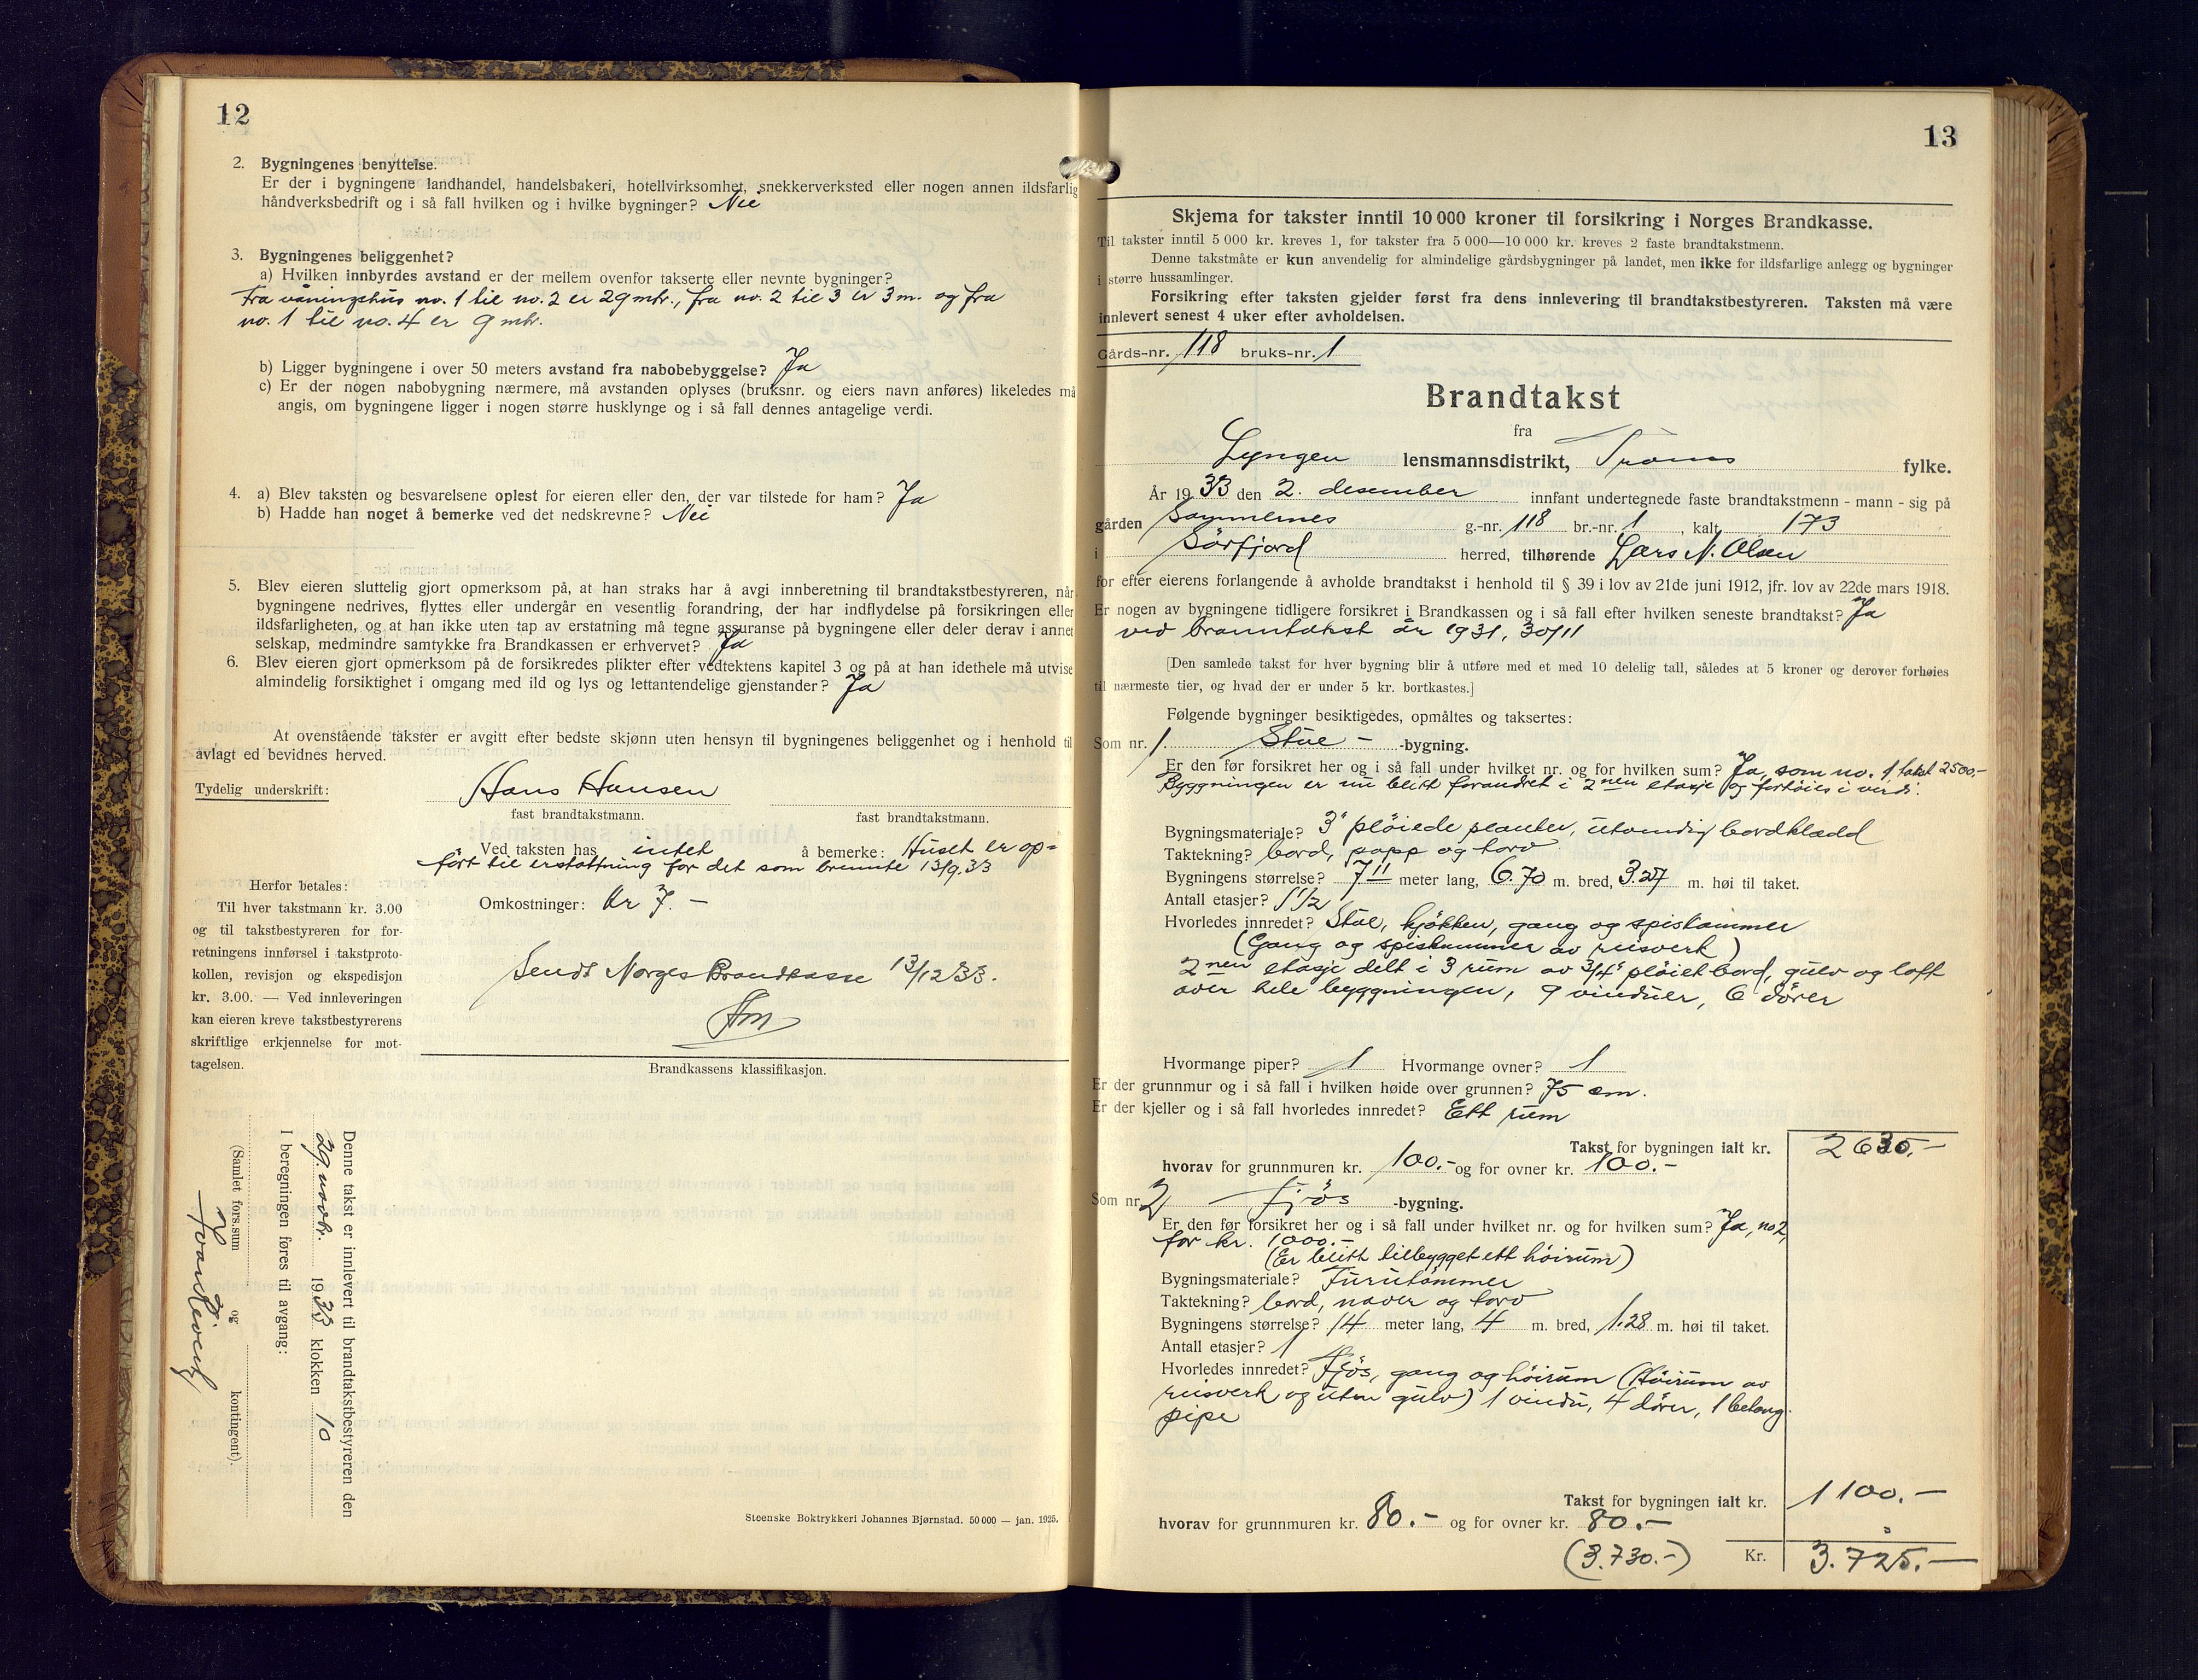 12
2. Bygningenes benyttelse.
Er der i bygningene landhandel, handelsbakeri, hotellvirksomhet, snekkerverksted eller nogen annen ildsfarlig
håndverksbedrift og i så fall hvilken og i hvilke bygninger? Nei
3. Bygningenes beliggenhet?
a) Hvilken innbyrdes avstand er der mellem ovenfor takserte eller nevnte bygninger?
Fra våningshus no. 1 til no. 2 er 29 mtr., fra no. 2 til 3 er 3 m. og fra
no. 1 til no. 4 er 9 mtr.
b) Ligger bygningene i over 50 meters avstand fra nabobebyggelse? Ja
c) Er der nogen nabobygning nærmere, må avstanden oplyses (bruksnr. og eiers navn anføres) likeledes må
angis, om bygningene ligger i nogen større husklynge og i så fall dennes antagelige verdi.
4. a) Blev taksten og besvarelsene oplest for eieren eller den, der var tilstede for ham? Ja
b) Hadde han noget å bemerke ved det nedskrevne? Nei
5. Blev eieren sluttelig gjort opmerksom på, at han straks har å avgi innberetning til brandtakstbestyreren, når
bygningene nedrives, flyttes eller undergår en vesentlig forandring, der har indflydelse på forsikringen eller
ildsfarligheten, og at han ikke uten tap av erstatning må tegne assuranse på bygningene eller deler derav i annet
selskap, medmindre samtykke fra Brandkassen er erhvervet? Ja
6. Blev eieren gjort opmerksom på de forsikredes plikter efter vedtektens kapitel 3 og på at han idethele må utvise
almindelig forsiktighet i omgang med ild og lys og lettantendelige gjenstander? Ja
At ovenstående takster er avgitt efter bedste skjønn uten hensyn til bygningenes beliggenhet og i henhold til
avlagt ed bevidnes herved.
Tydelig underskrift: Hans Hansen
fast brandtakstmann. fast brandtakstmann.
Ved taksten has intet å bemerke: Huset er op=
ført til erstattning for det som brennte 13/9.33
Omkostninger: Kr 7.-
Herfor betales:
Til hver takstmann kr. 3.00
og til takstbestyreren for for-
retningens innførsel i takstproto-
kollen, revisjon og ekspedisjon
kr. 3.00. — Ved innleveringen
kan eieren kreve takstbestyrerens
skriftlige erkjennelse for mot-
tagelsen.
Sendt Norges Brandkasse 13/12 33.
Brandkassens klassifikasjon.
Denne takst er innlevert til brandtakstbestyreren den
29. novbr. 1933 klokken 10
I beregningen føres til avgang:
(Samlet fors.sum og kontingent).
Steenske Boktrykkeri Johannes Bjørnstad. 50 000 — jan. 1925.
13
Skjema for takster inntil 10 000 kroner til forsikring i Norges Brandkasse.
Til takster inntil 5 000 kr. kreves 1, for takster fra 5 000—10 000 kr. kreves 2 faste brandtakstmenn.
Denne takstmåte er kun anvendelig for almindelige gårdsbygninger på landet, men ikke for ildsfarlige anlegg og bygninger
i større hussamlinger.
Forsikring efter taksten gjelder først fra dens innlevering til brandtakstbestyreren. Taksten må være
innlevert senest 4 uker efter avholdelsen.
Gårds-nr. 118 bruks-nr. 1
Brandtakst
fra
Lyngen lensmannsdistrikt, Troms fylke.
År 1933 den 2. desember innfant undertegnede faste brandtakstmenn - mann - sig på
gården Sommernes g.-nr. 118 br.-nr. 1, kalt 173
i Sörfjord herred, tilhørende Lars N. Olsen
for efter eierens forlangende å avholde brandtakst i henhold til § 39 i lov av 21de juni 1912, jfr. lov av 22de mars 1918.
Er nogen av bygningene tidligere forsikret i Brandkassen og i så fall efter hvilken seneste brandtakst? Ja
ved branntakst år 1931, 30/11
[Den samlede takst for hver bygning blir å utføre med et med 10 delelig tall, således at 5 kroner og derover forhøies
til nærmeste tier, og hvad der er under 5 kr. bortkastes.]
Følgende bygninger besiktigedes, opmåltes og taksertes:
Som nr. 1. Stue - -bygning.
Er den før forsikret her og i så fall under hvilket nr. og for hvilken sum? Ja, som no. 1 takst 2500.-
Byggningen er nu blitt forandret i 2nen etasje og forhöies i verdi.
Bygningsmateriale? 3" plöiede planker, utvendig bordklædd
Taktekning? bord, papp og torv
Bygningens størrelse? 7.11 meter lang, 6.70 m. bred, 3.27 m. høi til taket.
Antall etasjer? 1 1/2
Hvorledes innredet? Stue, kjökken, gang og spiskammer
(Gang og spiskammer av reisverk)
2nen etasje delt i 3 rum av 3/4" plöiet bord, gulv og loft
over hele byggningen, 9 vinduer, 6 dörer
Hvormange piper? 1 Hvormange ovner? 1
Er der grunnmur og i så fall i hvilken høide over grunnen? 75 cm.
Er der kjeller og i så fall hvorledes innredet? Ett rum
Takst for bygningen ialt kr. 2630.-
hvorav for grunnmuren kr. 100.- og for ovner kr. 100.-
Som nr. 2 Fjös -bygning.
Er den før forsikret her og i så fall under hvilket nr. og for hvilken sum? Ja, no 2,
for kr. 1000.-
(Er blitt tilbygget ett höirum)
Bygningsmateriale? Furutömmer
Taktekning? bord, never og torv
Bygningens størrelse? 14 meter lang, 4 m. bred, 1.28 m. høi til taket.
Antall etasjer? 1
Hvorledes innredet? Fjös, gang og höirum (Höirum av
reisverk og uten gulv) 1 vindu, 4 dörer, 1 betong
pipe
Takst for bygningen ialt kr. 1100.-
hvorav for grunnmuren kr. 80.- og for ovner kr. 80.-
(3.730.-) Kr. 3.725.-